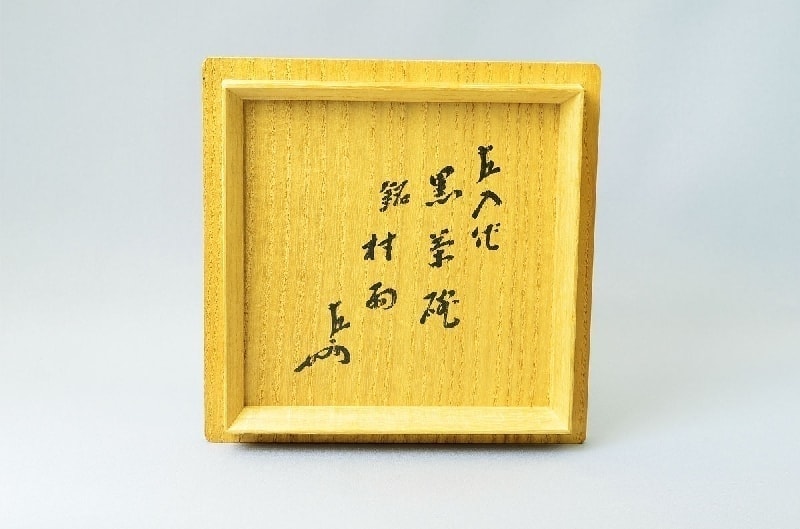 左入作
黒茶碗
銘 村雨
左